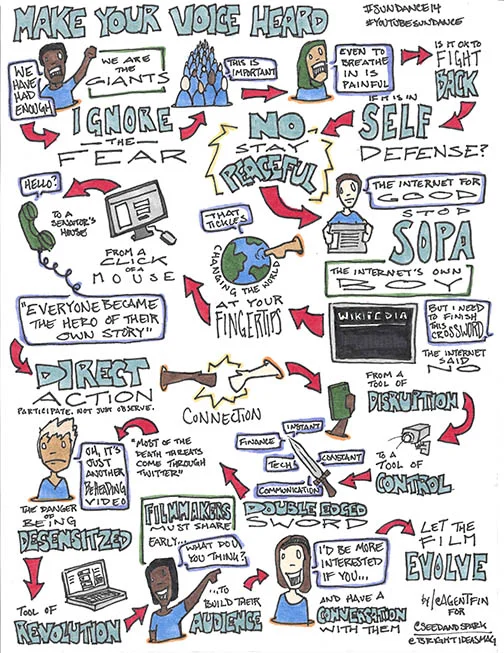 MAKE YOUR VOICE HEARD
#SUNDANCE14
#YOUTUBESUNDANCE
WE
HAVE
HAD
ENOUGH
WE ARE
THE
GIANTS
THIS IS
IMPORTANT
EVEN TO
BREATHE
IN IS
PAINFUL
IS IT OK TO
FIGHT
BACK
IF IT IS IN
SELF
DEFENSE?
NO
STAY
PEACEFUL
IGNORE
THE
FEAR
HELLO?
TO A
SENATOR'S
HOUSE
FROM A
CLICK
OF A
MOUSE
THAT
TICKLES
CHANGING THE WORLD
AT YOUR
FINGERTIPS
THE INTERNET FOR
GOOD
STOP
SOPA
THE INTERNET'S OWN
BOY
WIKIPEDIA
BUT I NEED
TO FINISH
THIS CROSSWORD
THE INTERNET
SAID
NO
"EVERYONE BECAME
THE HERO OF THEIR
OWN STORY"
DIRECT
ACTION
PARTICIPATE. NOT JUST OBSERVE.
CONNECTION
FROM A
TOOL OF
DISRUPTION
TO A
TOOL OF
CONTROL
INSTANT
FINANCE
CONSTANT
TECH
COMMUNICATION
DOUBLE EDGED
SWORD
"MOST OF THE
DEATH THREATS
COME THROUGH
TWITTER"
OH, IT'S
JUST
ANOTHER
BEHEADING
VIDEO
THE DANGER
OF BEING
DESENSITIZED
TOOL OF
REVOLUTION
FILMMAKERS
MUST SHARE
EARLY...
WHAT DO
YOU THINK?
...TO
BUILD THEIR
AUDIENCE
I'D BE MORE
INTERESTED
IF YOU...
AND HAVE A
CONVERSATION
WITH THEM
LET THE
FILM
EVOLVE
BY/@AGENTFIN
FOR
@SEEDANDSPARK
@TSBRIGHTIDEASMAG